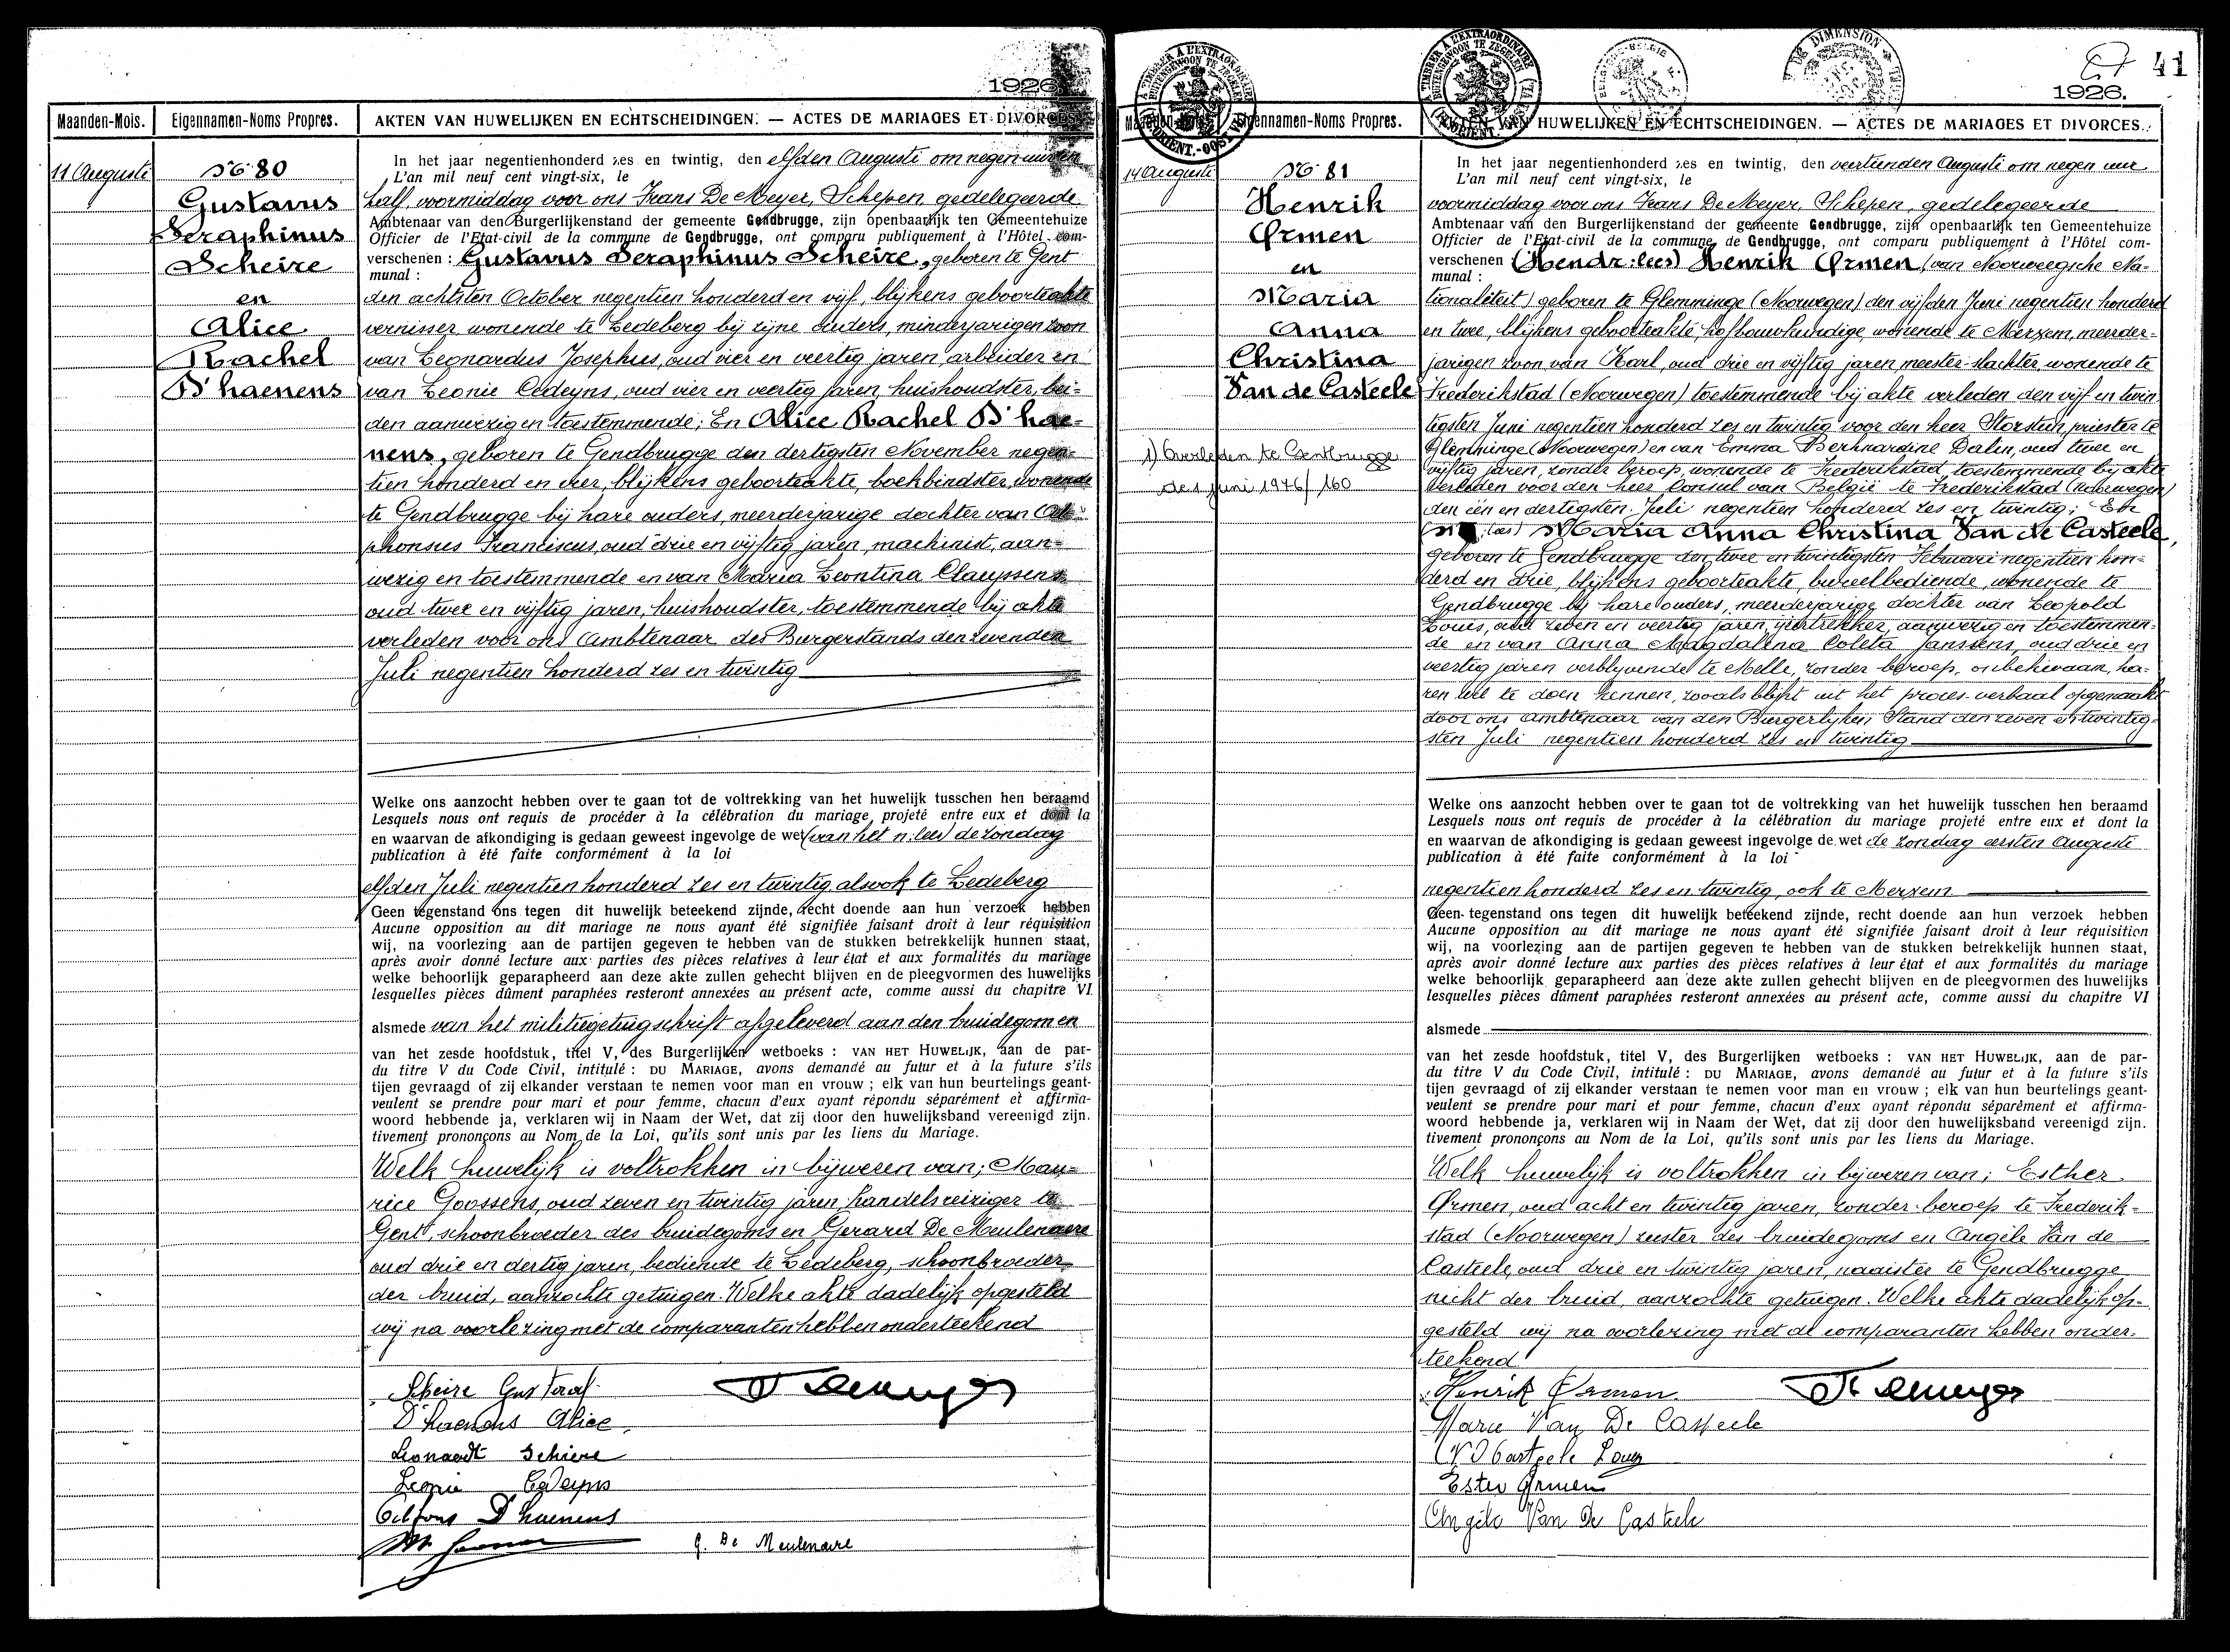 1926
Maanden-Mois. Eigennamen-Noms Propres. AKTEN VAN HUWELIJKEN EN ECHTSCHEIDINGEN. — ACTES DE MARIAGES ET DIVORCES.
11 Augusti
No 80
Gustavus
Seraphinus
Scheire
en
Alice
Rachel
D'haenens
In het jaar negentienhonderd zes en twintig, den elfden Augusti om negen uren
L'an mil neuf cent vingt-six, le
half voormiddag voor ons Frans De Meyer, Schepen gedelegeerde
Ambtenaar van den Burgerlijkenstand der gemeente Gendbrugge, zijn openbaarlijk ten Gemeentehuize
Officier de l'Etat-civil de la commune de Gendbrugge, ont comparu publiquement à l'Hôtel com-
verschenen : Gustavus Seraphinus Scheire, geboren te Gent
munal :
den achtsten October negentien honderd en vijf, blijkens geboorteakte
vernisser wonende te Ledeberg bij zijne ouders, minderjarigen zoon
van Leonardus Josephus, oud vier en veertig jaren, arbeider en
van Leonie Cedeyns, oud vier en veertig jaren, huishoudster, bei-
den aanwezig en toestemmende; En Alice Rachel D'hae-
nens, geboren te Gendbrugge den dertigsten November negen-
tien honderd en vier, blijkens geboorteakte, boekbindster, wonende
te Gendbrugge bij hare ouders, meerderjarige dochter van Al-
phonsus Franciscus, oud drie en vijftig jaren, machinist, aan-
wezig en toestemmende en van Maria Leontina Clauyssens
oud twee en vijftig jaren, huishoudster, toestemmende bij akte
verleden voor ons Ambtenaar des Burgerstands den zevenden
Juli negentien honderd zes en twintig
Welke ons aanzocht hebben over te gaan tot de voltrekking van het huwelijk tusschen hen beraamd
Lesquels nous ont requis de procéder à la célébration du mariage projeté entre eux et dont la
en waarvan de afkondiging is gedaan geweest ingevolge de wet (van het n: lees) de zondag
publication à été faite conformément à la loi
elfden Juli negentien honderd zes en twintig alsook te Ledeberg
Geen tegenstand ons tegen dit huwelijk beteekend zijnde, recht doende aan hun verzoek hebben
Aucune opposition au dit mariage ne nous ayant été signifiée faisant droit à leur réquisition
wij, na voorlezing aan de partijen gegeven te hebben van de stukken betrekkelijk hunnen staat,
après avoir donné lecture aux parties des pièces relatives à leur état et aux formalités du mariage
welke behoorlijk geparapheerd aan deze akte zullen gehecht blijven en de pleegvormen des huwelijks
lesquelles pièces dûment paraphées resteront annexées au présent acte, comme aussi du chapitre VI
alsmede van het militiegetuigschrift afgeleverd aan den bruidegom en
van het zesde hoofdstuk, titel V, des Burgerlijken wetboeks : VAN HET HUWELIJK, aan de par-
du titre V du Code Civil, intitulé : DU MARIAGE, avons demandé au futur et à la future s'ils
tijen gevraagd of zij elkander verstaan te nemen voor man en vrouw ; elk van hun beurtelings geant-
veulent se prendre pour mari et pour femme, chacun d'eux ayant répondu séparément et affirma-
woord hebbende ja, verklaren wij in Naam der Wet, dat zij door den huwelijksband vereenigd zijn.
tivement prononçons au Nom de la Loi, qu'ils sont unis par les liens du Mariage.
Welk huwelijk is voltrokken in bijwezen van; Mau-
rice Goossens, oud zeven en twintig jaren, handelsreiziger te
Gent, schoonbroeder des bruidegoms en Gerard De Meulenaere
oud drie en dertig jaren, bediende te Ledeberg, schoonbroeder
der bruid, aanzochte getuigen. Welke akte dadelijk opgesteld
wij na voorlezing met de comparanten hebben onderteekend
Scheire Gustaaf
D'haenens Alice
Leonardt Schiere
Leonie Cedeyns
Alfons D'haenens
G. De Meulenaere
41
1926.
Eigennamen-Noms Propres. AKTEN VAN HUWELIJKEN EN ECHTSCHEIDINGEN. — ACTES DE MARIAGES ET DIVORCES.
14 Augusti
No 81
Henrik
Ørmen
en
Maria
Anna
Christina
Van de Casteele
1) Overleden te Gentbrugge
de 1 juni 1976/160
In het jaar negentienhonderd zes en twintig, den veertienden Augusti om negen uur
L'an mil neuf cent vingt-six, le
voormiddag voor ons Frans De Meyer, Schepen, gedelegeerde
Ambtenaar van den Burgerlijkenstand der gemeente Gendbrugge, zijn openbaarlijk ten Gemeentehuize
Officier de l'Etat-civil de la commune de Gendbrugge, ont comparu publiquement à l'Hôtel com-
verschenen (Hendr: lees) Henrik Ørmen (van Noorweegsche Na-
munal :
tionaliteit) geboren te Glemminge (Noorwegen) den vijfden Juni negentien honderd
en twee, blijkens geboorteakte, hofbouwkundige, wonende te Merxem, meerder-
jarigen zoon van Karl, oud drie en vijftig jaren meester-slachter, wonende te
Frederikstad (Noorwegen) toestemmende bij akte verleden den vijf en twin
tigsten Juni negentien honderd zes en twintig voor den heer Storsten, priester te
Glemminge (Noorwegen) en van Emma Bernhardine Dalin, oud twee en
vijftig jaren, zonder beroep, wonende te Frederikstad, toestemmende bij akte
verleden voor den heer Consul van België te Frederikstad (Noorwegen)
den één en dertigsten Juli negentien honderd zes en twintig; En
Maria Anna Christina Van de Casteele,
geboren te Gendbrugge den twee en twintigsten Februari negentien hon-
derd en drie, blijkens geboorteakte, bureelbediende, wonende te
Gendbrugge bij hare ouders, meerderjarige dochter van Leopold
Louis, oud zeven en veertig jaren, aanwezig en toestemmen-
de en van Anna Magdalena Coleta Janssens, oud drie en
veertig jaren verblyvende te Melle, zonder beroep, onbekwaam, ha-
ren wil te doen kennen, zooals blijkt uit het proces-verbaal opgemaakt
door ons Ambtenaar van den Burgerlyken Stand den zeven en twintig-
sten Juli negentien honderd zes en twintig
Welke ons aanzocht hebben over te gaan tot de voltrekking van het huwelijk tusschen hen beraamd
Lesquels nous ont requis de procéder à la célébration du mariage projeté entre eux et dont la
en waarvan de afkondiging is gedaan geweest ingevolge de wet de zondag eersten Augusti
publication à été faite conformément à la loi
negentien honderd zes en twintig, ook te Merxem
Geen tegenstand ons tegen dit huwelijk beteekend zijnde, recht doende aan hun verzoek hebben
Aucune opposition au dit mariage ne nous ayant été signifiée faisant droit à leur réquisition
wij, na voorlezing aan de partijen gegeven te hebben van de stukken betrekkelijk hunnen staat,
après avoir donné lecture aux parties des pièces relatives à leur état et aux formalités du mariage
welke behoorlijk geparapheerd aan deze akte zullen gehecht blijven en de pleegvormen des huwelijks
lesquelles pièces dûment paraphées resteront annexées au présent acte, comme aussi du chapitre VI
alsmede
van het zesde hoofdstuk, titel V, des Burgerlijken wetboeks : VAN HET HUWELIJK, aan de par-
du titre V du Code Civil, intitulé : DU MARIAGE, avons demandé au futur et à la future s'ils
tijen gevraagd of zij elkander verstaan te nemen voor man en vrouw ; elk van hun beurtelings geant-
veulent se prendre pour mari et pour femme, chacun d'eux ayant répondu séparément et affirma-
woord hebbende ja, verklaren wij in Naam der Wet, dat zij door den huwelijksband vereenigd zijn.
tivement prononçons au Nom de la Loi, qu'ils sont unis par les liens du Mariage.
Welk huwelijk is voltrokken in bijwezen van; Esther
Ørmen, oud acht en twintig jaren, zonder beroep te Frederik-
stad (Noorwegen) zuster des bruidegoms en Angèle Van de
Casteele, oud drie en twintig jaren, naaister te Gendbrugge
nicht der bruid, aanzochte getuigen. Welke akte dadelijk op-
gesteld wij na voorlezing met de comparanten hebben onder-
teekend
Henrik Ørmen
Marie Van De Casteele
Ester Ørmen
Angèle Van De Casteele